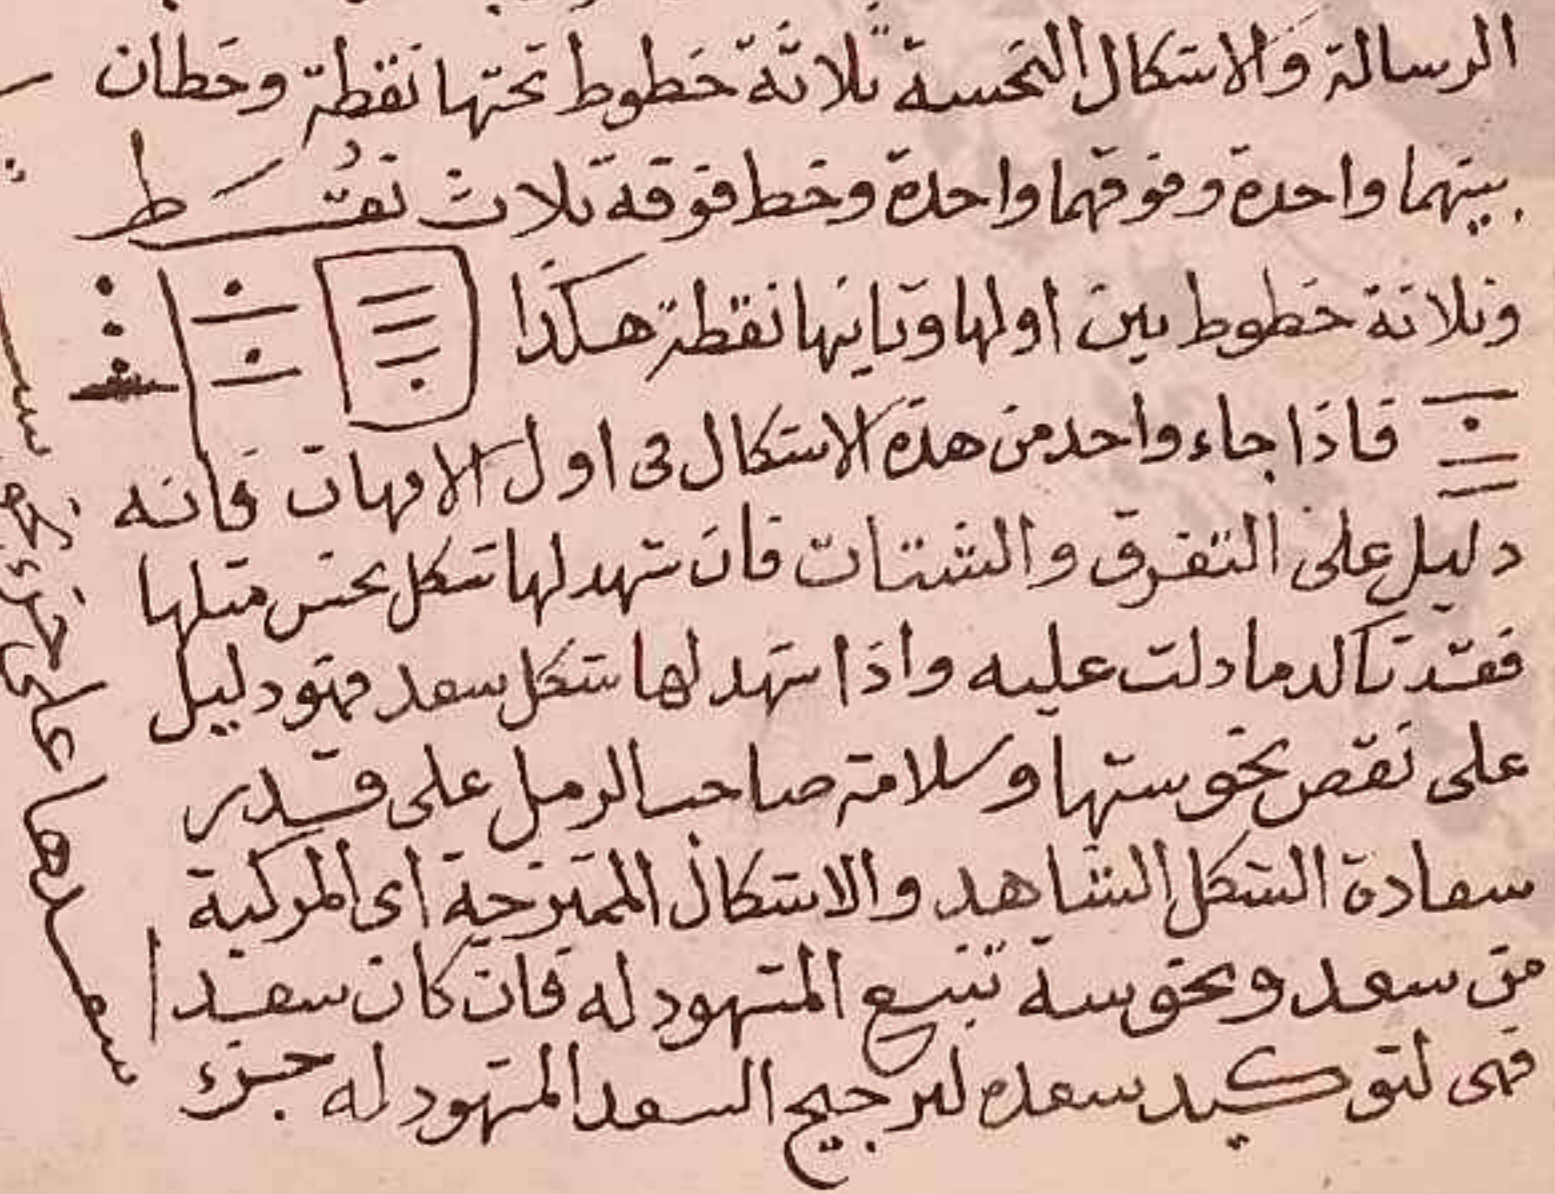 الرسالة والاشكال النحسة ثلاثة خطوط تحتها نقطة وخطان
بينهما واحدة وفوقهما واحدة وخط فوقه ثلاث نقط
وثلاثة خطوط بين اولها وثانيها نقطة هكذا
فاذا جاء واحد من هذه الاشكال فى اول الامهات فانه
دليل على التفرق والشتات فان شهد لها شكل نحس مثلها
فقد تاكد ما دلت عليه واذا شهد لها شكل سعد فهو دليل
على نقص نحوستها وسلامة صاحب الرمل على قدر
سعادة الشكل الشاهد والاشكال الممتزجة اى المركبة
من سعد ونحوسة تتبع المشهود له فان كان سعدا
فهى لتوكيد سعده لترجيح السعد المشهود له جزء